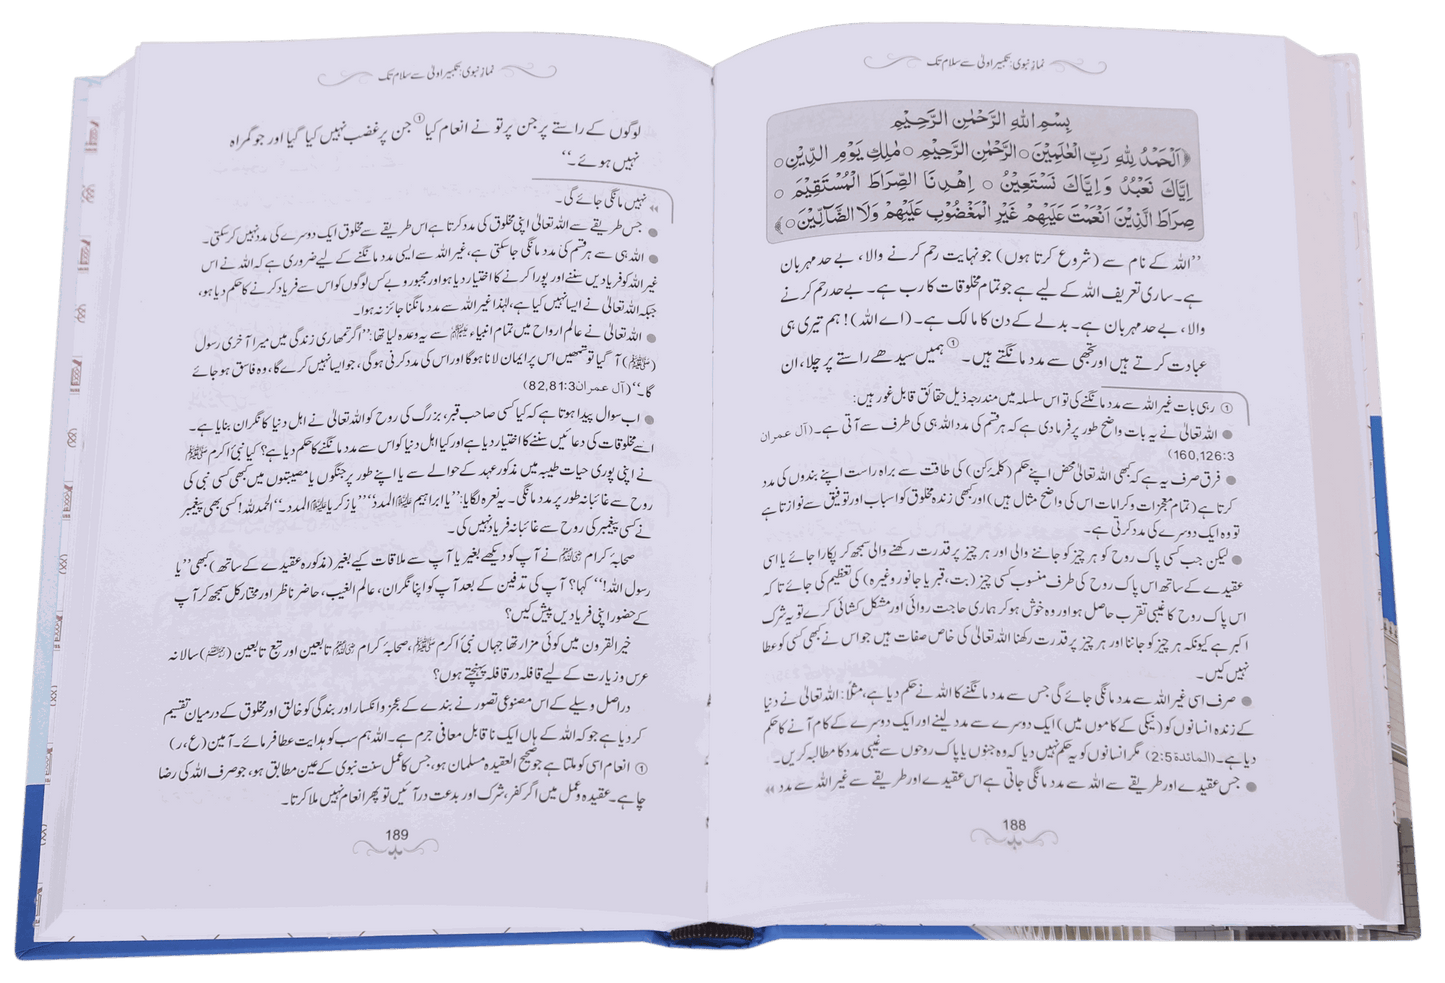 نماز نبوی: تکبیر اولیٰ سے سلام تک
بِسْمِ اللهِ الرَّحْمٰنِ الرَّحِيْمِ
﴿اَلْحَمْدُ لِلّٰهِ رَبِّ الْعٰلَمِيْنَ ○ الرَّحْمٰنِ الرَّحِيْمِ ○ مٰلِكِ يَوْمِ الدِّيْنِ ○
اِيَّاكَ نَعْبُدُ وَاِيَّاكَ نَسْتَعِيْنُ ○ اِهْدِنَا الصِّرَاطَ الْمُسْتَقِيْمَ ○
صِرَاطَ الَّذِيْنَ اَنْعَمْتَ عَلَيْهِمْ غَيْرِ الْمَغْضُوْبِ عَلَيْهِمْ وَلَا الضَّآلِّيْنَ ○﴾
’’اللہ کے نام سے (شروع کرتا ہوں) جو نہایت رحم کرنے والا، بے حد مہربان
ہے۔ ساری تعریف اللہ کے لیے ہے جو تمام مخلوقات کا رب ہے۔ بے حد رحم کرنے
والا، بے حد مہربان ہے۔ بدلے کے دن کا مالک ہے۔ (اے اللہ)! ہم تیری ہی
عبادت کرتے ہیں اور تجھی سے مدد مانگتے ہیں۔① ہمیں سیدھے راستے پر چلا، ان
① رہی بات غیراللہ سے مدد مانگنے کی تو اس سلسلہ میں مندرجہ ذیل حقائق قابل غور ہیں:
● اللہ تعالیٰ نے یہ بات واضح طور پر فرما دی ہے کہ ہر قسم کی مدد اللہ ہی کی طرف سے آتی ہے۔ (آل عمران
160,126:3)
● فرق صرف یہ ہے کہ کبھی اللہ تعالیٰ محض اپنے حکم (کلمۂ کن) کی طاقت سے براہ راست اپنے بندوں کی مدد
کرتا ہے (تمام معجزات و کرامات اس کی واضح مثال ہیں) اور کبھی زندہ مخلوق کو اسباب اور توفیق سے نوازتا ہے
تو وہ ایک دوسرے کی مدد کرتی ہے۔
● لیکن جب کسی پاک روح کو ہر چیز کو جاننے والی اور ہر چیز پر قدرت رکھنے والی سمجھ کر پکارا جائے یا اسی
عقیدے کے ساتھ اس پاک روح کی طرف منسوب کسی چیز (بت، قبر یا جانور وغیرہ) کی تعظیم کی جائے تاکہ
اس پاک روح کا غیبی تقرب حاصل ہو اور وہ خوش ہو کر ہماری حاجت روائی اور مشکل کشائی کرے تو یہ شرک
اکبر ہے کیونکہ ہر چیز کو جاننا اور ہر چیز پر قدرت رکھنا اللہ تعالیٰ کی خاص صفات ہیں جو اس نے کبھی کسی کو عطا
نہیں کیں۔
● صرف اسی غیراللہ سے مدد مانگی جائے گی جس سے مدد مانگنے کا اللہ نے حکم دیا ہے، مثلاً: اللہ تعالیٰ نے دنیا
کے زندہ انسانوں کو (نیکی کے کاموں میں) ایک دوسرے سے مدد لینے اور ایک دوسرے کے کام آنے کا حکم
دیا ہے۔ (المائدة 2:5) مگر انسانوں کو یہ حکم نہیں دیا کہ وہ جنوں یا پاک روحوں سے غیبی مدد کا مطالبہ کریں۔
● جس عقیدے اور طریقے سے اللہ سے مدد مانگی جاتی ہے اس عقیدے اور طریقے سے غیراللہ سے مدد ‹‹
188
نماز نبوی: تکبیر اولیٰ سے سلام تک
لوگوں کے راستے پر جن پر تو نے انعام کیا① جن پر غضب نہیں کیا گیا اور جو گمراہ
نہیں ہوئے۔‘‘
›› نہیں مانگی جائے گی۔
● جس طریقے سے اللہ تعالیٰ اپنی مخلوق کی مدد کرتا ہے اس طریقے سے مخلوق ایک دوسرے کی مدد نہیں کر سکتی۔
● اللہ ہی سے ہر قسم کی مدد مانگی جا سکتی ہے، غیراللہ سے ایسی مدد مانگنے کے لیے ضروری ہے کہ اللہ نے اس
غیراللہ کو فریادیں سننے اور پورا کرنے کا اختیار دیا ہو اور مجبور و بے کس لوگوں کو اس سے فریاد کرنے کا حکم دیا ہو،
جبکہ اللہ تعالیٰ نے ایسا نہیں کیا ہے، لہٰذا غیراللہ سے مدد مانگنا جائز نہ ہوا۔
● اللہ تعالیٰ نے عالم ارواح میں تمام انبیاء ﷺ سے یہ وعدہ لیا تھا: ’’اگر تمھاری زندگی میں میرا آخری رسول
(ﷺ) آ گیا تو تمھیں اس پر ایمان لانا ہوگا اور اس کی مدد کرنی ہوگی، جو ایسا نہیں کرے گا، وہ فاسق ہو جائے
گا۔‘‘ (آل عمران 82,81:3)
● اب سوال پیدا ہوتا ہے کہ کیا کسی صاحب قبر، بزرگ کی روح کو اللہ تعالیٰ نے اہل دنیا کا نگران بنایا ہے۔
اسے مخلوقات کی دعائیں سننے کا اختیار دیا ہے اور کیا اہل دنیا کو اس سے مدد مانگنے کا حکم دیا ہے؟ کیا نبی اکرم ﷺ
نے اپنی پوری حیات طیبہ میں مذکور عہد کے حوالے سے یا اپنے طور پر جنگوں یا مصیبتوں میں کبھی کسی نبی کی
روح سے غائبانہ طور پر مدد مانگی۔ یہ نعرہ لگایا: ’’یا ابراہیم ﷺ المدد‘‘ ’’یا زکریا ﷺ المدد۔‘‘ الحمدللہ! کسی بھی پیغمبر
نے کسی پیغمبر کی روح سے غائبانہ فریاد نہیں کی۔
صحابۂ کرام ﷺ نے آپ کو دیکھے بغیر یا آپ سے ملاقات کیے بغیر (مذکورہ عقیدے کے ساتھ) کبھی ’’یا
رسول اللہ!‘‘ کہا؟ آپ کی تدفین کے بعد آپ کو اپنا نگران، عالم الغیب، حاضر ناظر اور مختار کل سمجھ کر آپ
کے حضور اپنی فریادیں پیش کیں؟
خیر القرون میں کوئی مزار تھا جہاں نبی اکرم ﷺ، صحابۂ کرام ﷺ تابعین اور تبع تابعین (﷭) سالانہ
عرس و زیارت کے لیے قافلہ در قافلہ پہنچتے ہوں؟
دراصل وسیلے کے اس مصنوعی تصور نے بندے کے عجز و انکسار اور بندگی کو خالق اور مخلوق کے درمیان تقسیم
کر دیا ہے جو کہ اللہ کے ہاں ایک ناقابل معافی جرم ہے۔ اللہ ہم سب کو ہدایت عطا فرمائے۔ آمین (ع،ر)
① انعام اسی کو ملتا ہے جو صحیح العقیدہ مسلمان ہو، جس کا عمل سنت نبوی کے عین مطابق ہو، جو صرف اللہ کی رضا
چاہے۔ عقیدہ و عمل میں اگر کفر، شرک اور بدعت در آئیں تو پھر انعام نہیں ملا کرتا۔
189